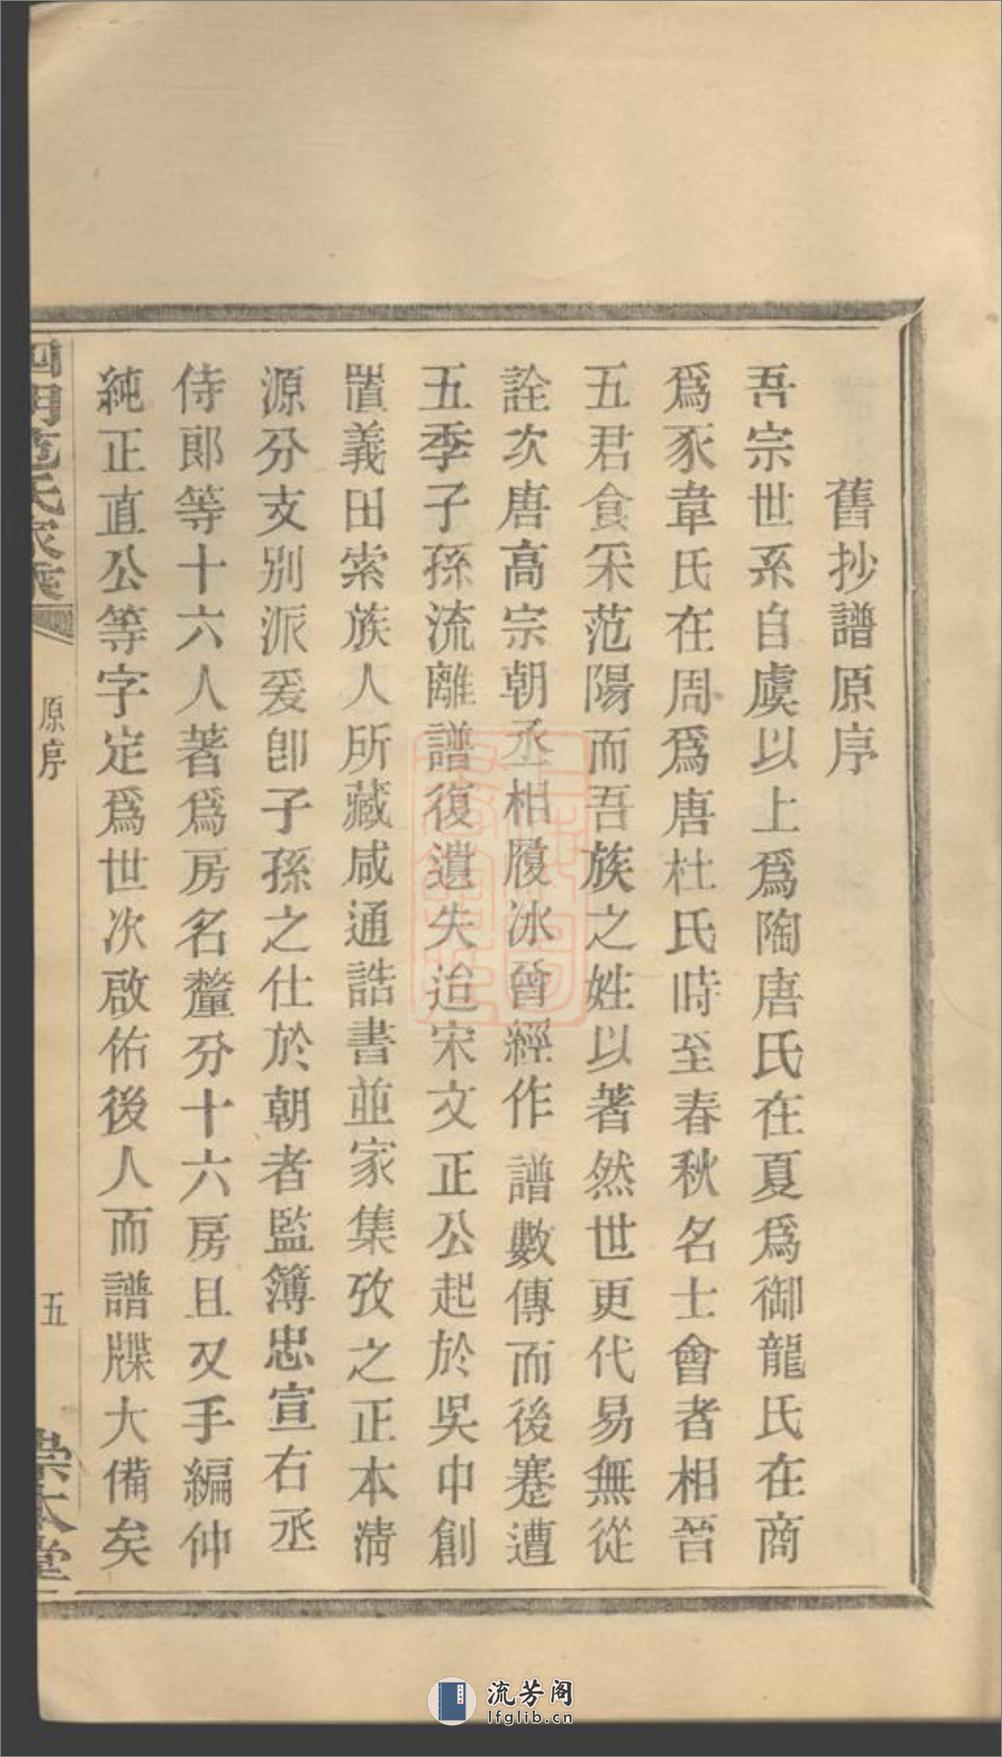 舊抄譜原序
吾宗世系自虞以上爲陶唐氏在夏爲御龍氏在商
爲豕韋氏在周爲唐杜氏時至春秋名士會者相晉
五君食采范陽而吾族之姓以著然世更代易無從
詮次唐高宗朝丞相履冰曾經作譜數傳而後蹇遭
五季子孫流離譜復遺失迨宋文正公起於吳中創
置義田索族人所藏咸通誥書並家集攷之正本清
源分支別派爰卽子孫之仕於朝者監簿忠宣右丞
侍郎等十六人著爲房名釐分十六房且又手編仲
純正直公等字定爲世次啟佑後人而譜牒大備矣
四明范氏家乘
原序
五
崇本堂
流芳阁
lfglib.cn